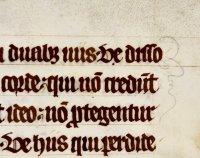 duabꝫ uiis. Ve disso
corde: qui nõ credũt
ideo: nõ ꝓtegentur
Ve hus qui perdide